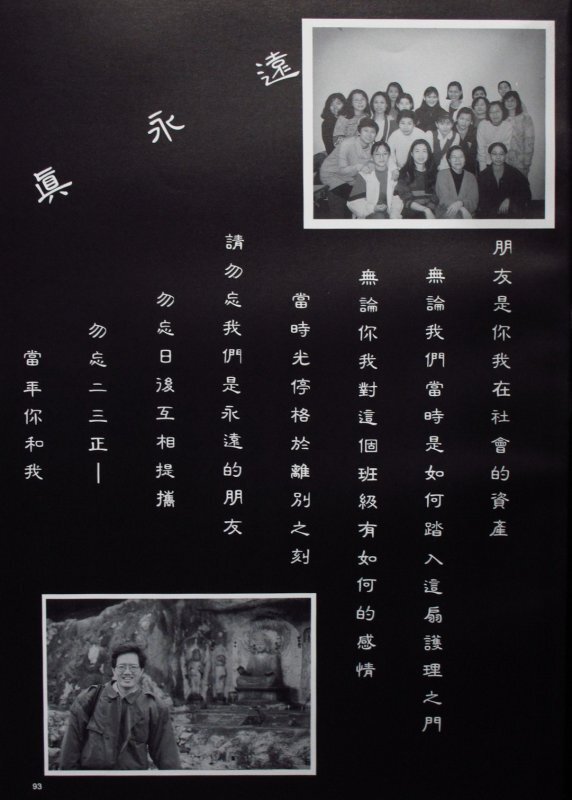 眞永遠
朋友是你我在社會的資產
無論我們當時是如何踏入這扇護理之門
無論你我對這個班級有如何的感情
當時光停格於離別之刻
請勿忘我們是永遠的朋友
勿忘日後互相提攜
勿忘二三正—
當年你和我
93